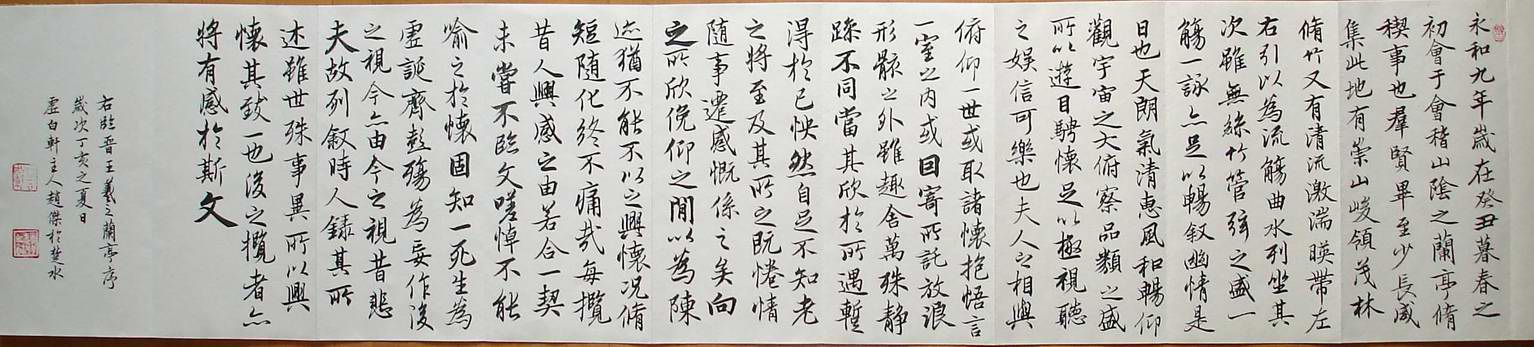 永和九年歲在癸丑暮春之
初會于會稽山陰之蘭亭脩
稧事也羣賢畢至少長咸
集此地有崇山峻領茂林
脩竹又有清流激湍暎帶左
右引以為流觴曲水列坐其
次雖無絲竹管弦之盛一
觴一詠亦足以暢叙幽情是
日也天朗氣清惠風和暢仰
觀宇宙之大俯察品類之盛
所以遊目騁懷足以極視聽
之娛信可樂也夫人之相與
俯仰一世或取諸懷抱悟言
一室之內或因寄所託放浪
形骸之外雖趣舍萬殊静
躁不同當其欣於所遇蹔
得於己怏然自足不知老
之將至及其所之既惓情
隨事遷感慨係之矣向
之所欣俛仰之間以為陳
迹猶不能不以之興懷況脩
短随化終不痛哉每攬
昔人興感之由若合一契
未嘗不臨文嗟悼不能
喻之於懷固知一死生為
虛誕齊彭殤為妄作後
之視今亦由今之視昔悲
夫故列叙時人錄其所
述雖世殊事異所以興
懷其致一也後之攬者亦
將有感於斯文
右臨晉王羲之蘭亭序
歲次丁亥之夏日
虛白軒主人趙傑於楚水